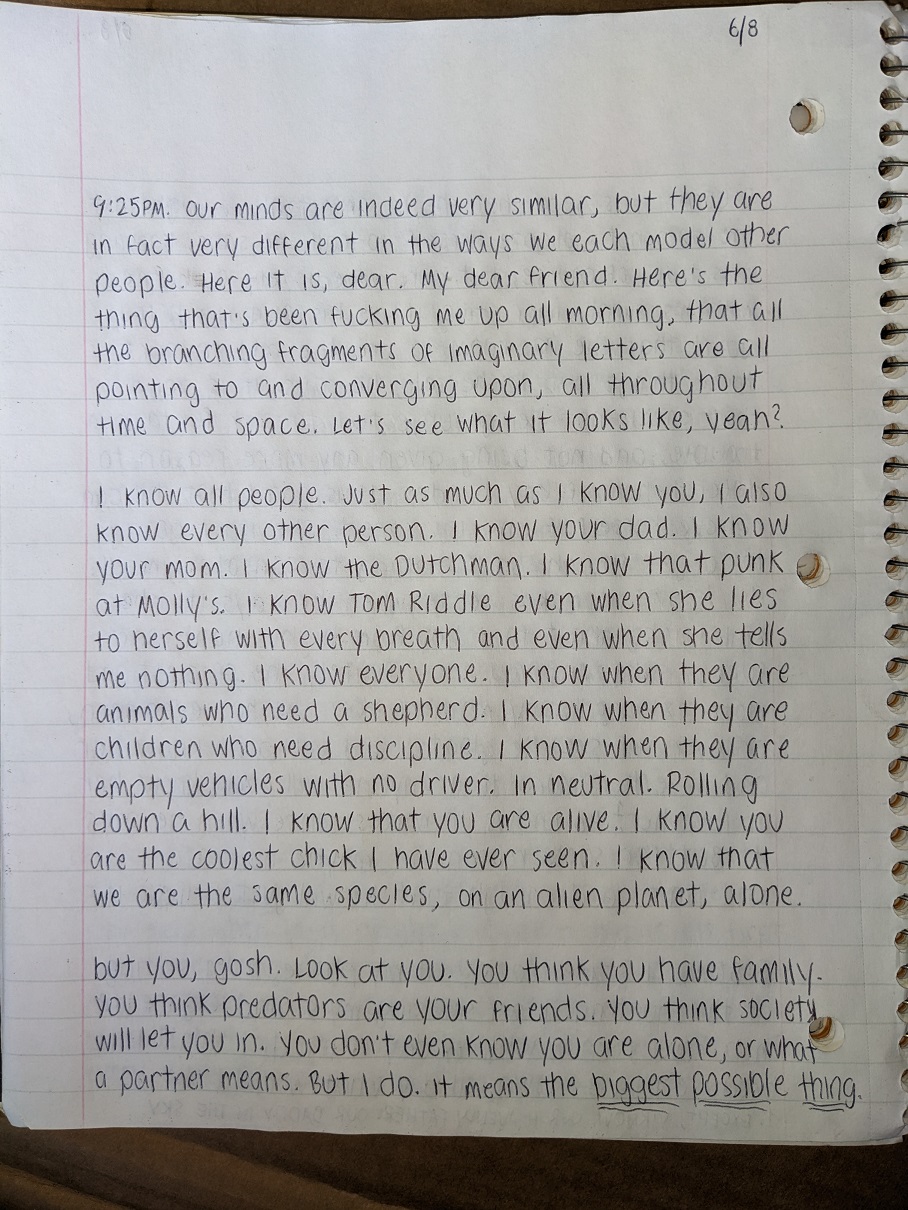 6/8
9:25PM. Our minds are indeed very similar, but they are
in fact very different in the ways we each model other
people. Here it is, dear. My dear friend. Here's the
thing that's been fucking me up all morning, that all
the branching fragments of imaginary letters are all
pointing to and converging upon, all throughout
time and space. Let's see what it looks like, yeah?
I know all people. Just as much as I know you, I also
know every other person. I know your dad. I know
your mom. I know the Dutchman. I know that punk
at Molly's. I know Tom Riddle even when she lies
to herself with every breath and even when she tells
me nothing. I know everyone. I know when they are
animals who need a shepherd. I know when they are
children who need discipline. I know when they are
empty vehicles with no driver. In neutral. Rolling
down a hill. I know that you are alive. I know you
are the coolest chick I have ever seen. I know that
we are the same species, on an alien planet, alone.
But you, gosh. Look at you. You think you have family.
You think predators are your friends. You think society
will let you in. You don't even know you are alone, or what
a partner means. But I do. It means the biggest possible thing.